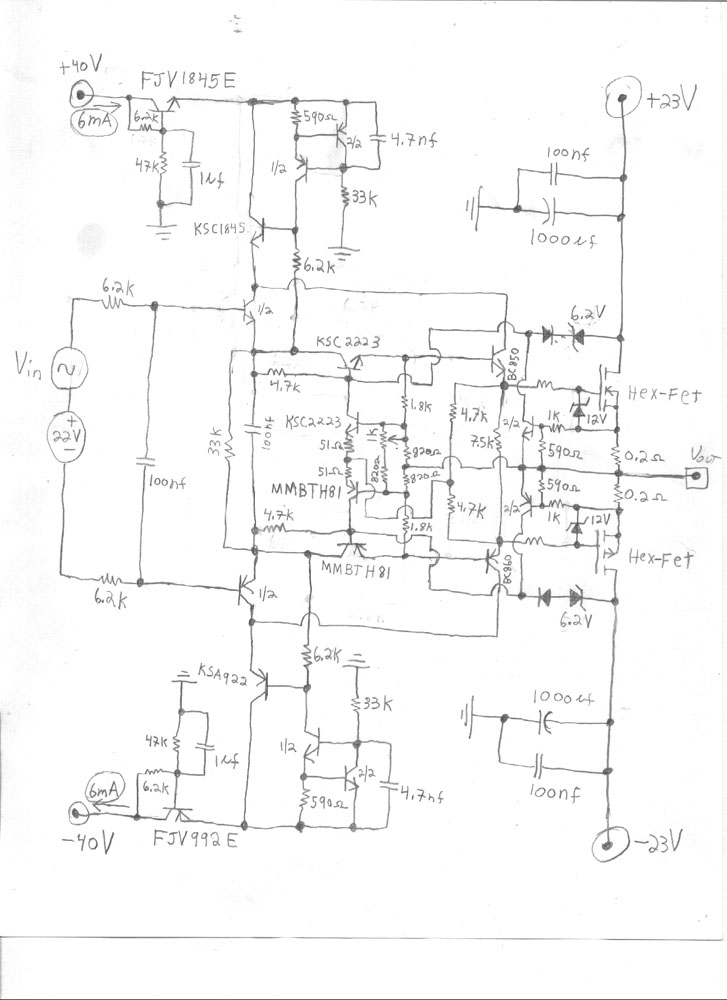 +40V
FJV1845E
6mA
6.2K
47K
1uf
590Ω
2/2
4.7nf
1/2
33K
+23V
100nf
1000uf
KSC1845
6.2K
6.2K
1/2
6.2V
Vin
22V
KSC2223
4.7K
BC850
Hex-Fet
12V
1.8K
4.7K
2/2
1K
KSC2223
33K
100nf
51Ω
1K
820Ω
7.5K
590Ω
0.2Ω
Vout
51Ω
820Ω
820Ω
590Ω
0.2Ω
100nf
MMBTH81
4.7K
2/2
1K
12V
4.7K
1.8K
MMBTH81
BC860
Hex-Fet
6.2K
1/2
6.2V
6.2K
KSA922
33K
1000uf
47K
1uf
1/2
2/2
6mA
6.2K
590Ω
4.7nf
100nf
-40V
FJV992E
-23V